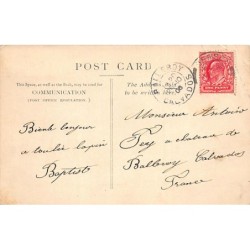 POST CARD
This Space, as well as the Back, may be used for
COMMUNICATION
(POST OFFICE REGULATION.)
The Address
to be writ
BALLEROY
CALVADOS
Bien le bonjour
a toulé lapin
Baptiste
Monsieur Antoine
Fey a chateau de
Balleroy Calvados
France